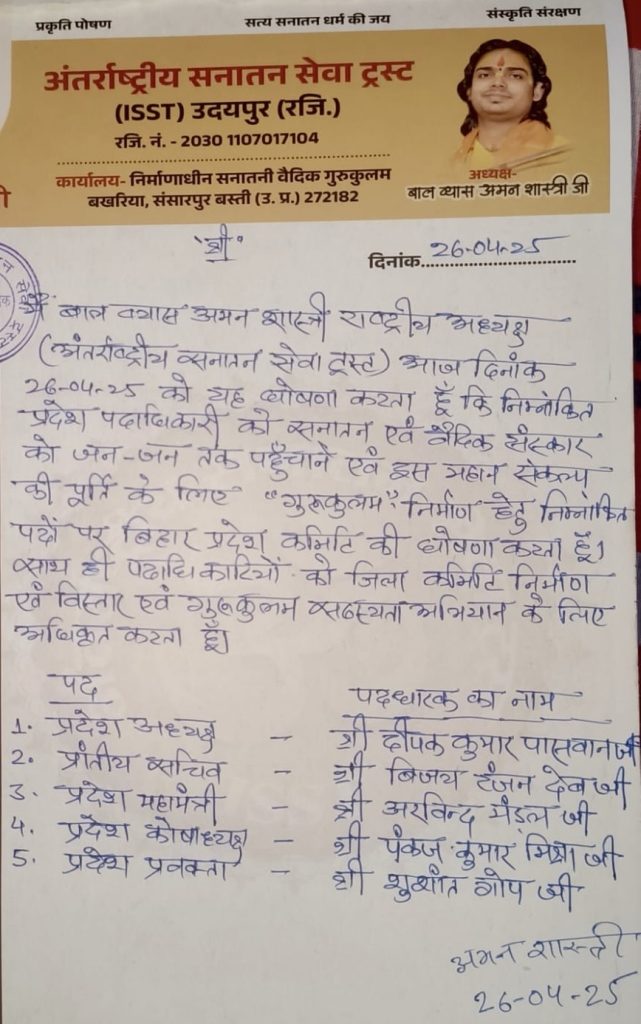 प्रकृति पोषण सत्य सनातन धर्म की जय संस्कृति संरक्षण
अंतर्राष्ट्रीय सनातन सेवा ट्रस्ट
(ISST) उदयपुर (रजि.)
रजि. नं. - 2030 1107017104
कार्यालय- निर्माणाधीन सनातनी वैदिक गुरुकुलम
बखरिया, संसारपुर बस्ती (उ. प्र.) 272182
अध्यक्ष-
बाल व्यास अमन शास्त्री जी
"श्री"
दिनांक 26-04-25
मैं बाल व्यास अमन शास्त्री राष्ट्रीय अध्यक्ष
(अंतर्राष्ट्रीय सनातन सेवा ट्रस्ट) आज दिनांक
26-04-25 को यह घोषणा करता हूँ कि निम्नांकित
प्रदेश पदाधिकारी को सनातन एवं वैदिक संस्कार
को जन-जन तक पहुँचाने एवं इस महान संकल्प
की पूर्ति के लिए "गुरुकुलम" निर्माण हेतु निम्नांकित
पदों पर बिहार प्रदेश कमिटि की घोषणा करता हूँ।
साथ ही पदाधिकारियों को जिला कमिटि निर्माण
एवं विस्तार एवं गुरुकुलम सदस्यता अभियान के लिए
अधिकृत करता हूँ।
पद पदधारक का नाम
1. प्रदेश अध्यक्ष - श्री दीपक कुमार पासवान जी
2. प्रांतीय सचिव - श्री बिजय रंजन देव जी
3. प्रदेश महामंत्री - श्री अरविन्द मंडल जी
4. प्रदेश कोषाध्यक्ष - श्री पंकज कुमार मिश्रा जी
5. प्रदेश प्रवक्ता - श्री शुशांत गोप जी
अमन शास्त्री
26-04-25